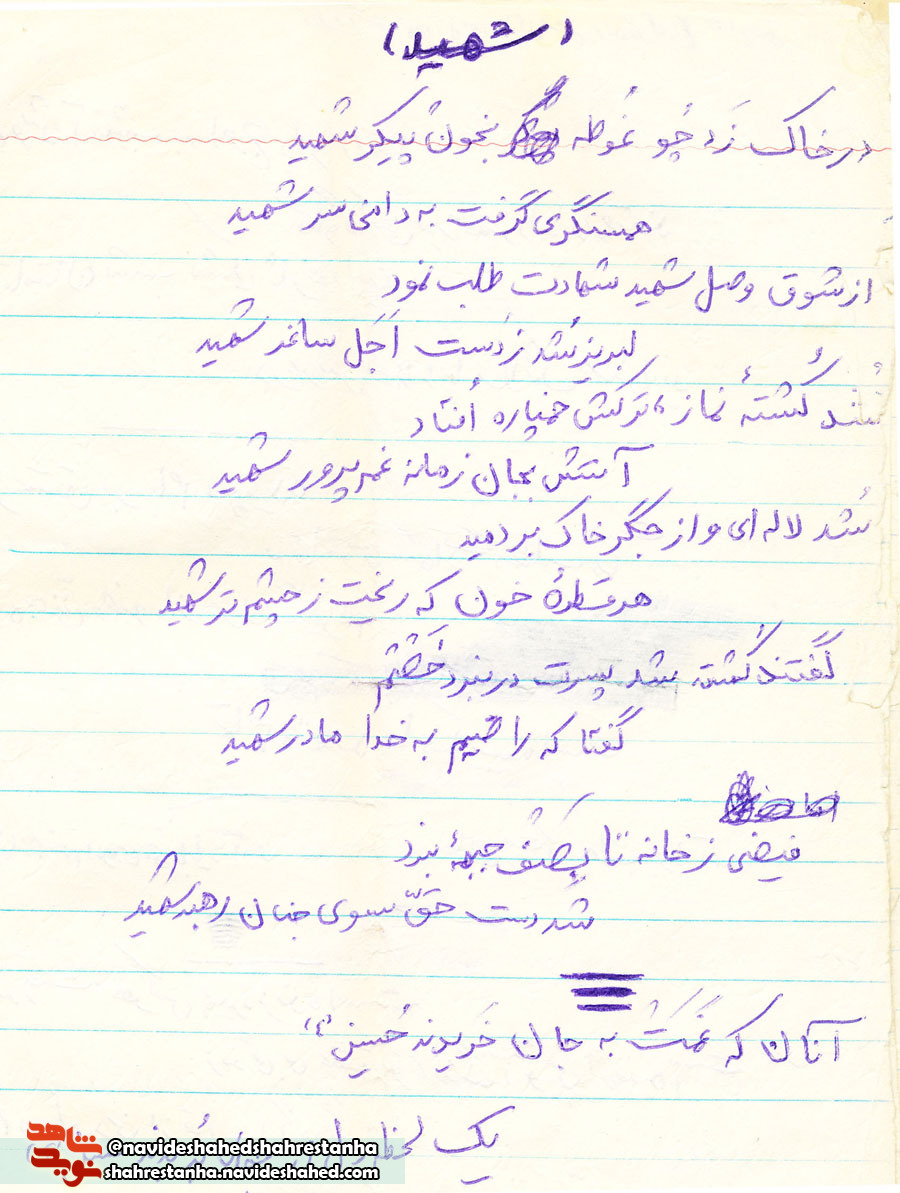 (شهید)
در خاک زَد چو غوطه بخون پیکر شهید
همسنگری گرفت به دامن سر شهید
از شوق وصل شهید شهادت طلب نمود
لبریز شُد ز دَست اَجَل ساغر شهید
شُد کُشتهٔ نماز، ترکش خمپاره اُفتاد
آتش بجان زمانه غم پرور شهید
شُد لاله ای و از جگر خاک بردمید
هر قطرهٔ خون که ریخت ز چشم تر شهید
گفتند کُشته شد پسرت در نبرد خَصم
گفتا که راضیم به خدا مادر شهید
فیضی ز خانه تا بصَف جبههٔ نبرد
شد دست حقّ سوی جنان رهبر شهید
آنان که غَمَت به جان خَریدند حُسین "ع"
یک لحظه
شاهد
نوید
@navideshahedshahrestanha
shahrestanha.navideshahed.com